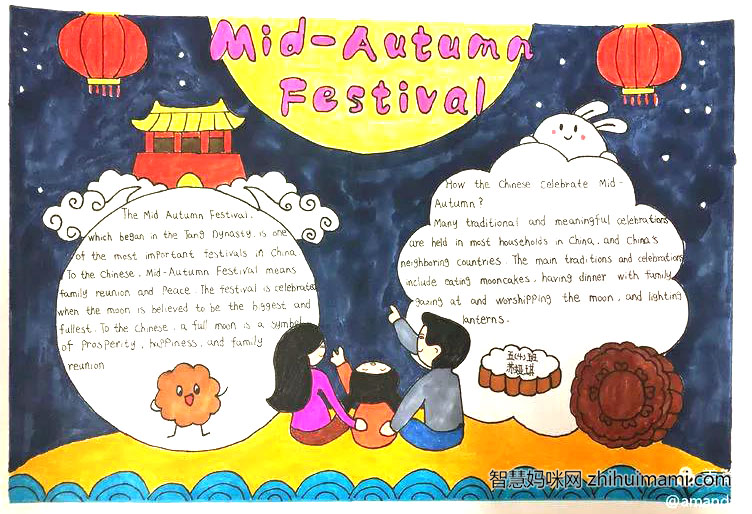 Mid-Autumn
Festival
The Mid Autumn Festival,
which began in the Tang Dynasty, is one
of the most important festivals in China.
To the Chinese, Mid-Autumn Festival means
family reunion and Peace. The festival is celebrated
when the moon is believed to be the biggest and
fullest. To the Chinese, a full moon is a symbol
of prosperity, happiness, and family
reunion
How the Chinese celebrate Mid-
Autumn?
Many traditional and meaningful celebrations
are held in most households in China, and China's
neighboring countries. The main traditions and celebrations
include eating mooncakes, having dinner with family
gazing at and worshipping the moon, and lighting
lanterns.
五(4)班
智慧妈咪网 zhihuimami.com
@amand